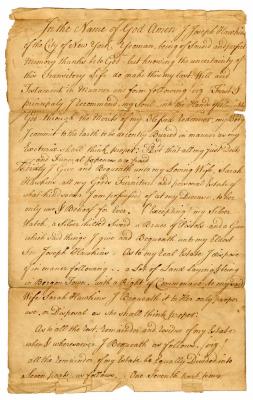 In the Name of God Amen I Joseph Hawkins
of the City of New York, Yeoman, being of Sound and perfect
Memory thanks be to God, but knowing the uncertainty of
this Transitory Life do make this my last Will and
Testament in Manner and form following
principaly I recommend my Soul into the Hands of
God through the Merits of my Redeemer, my Body
I commit to the Earth to be decently Buried in manner as my
Executrix shall think proper: that all my just Debts
and Funeral Expences are paid
I Give and Bequeath unto my Loving Wife Sarah
Hawkins all my Goods Furniture and personal Estate of
what kind soever I am possessed of at my Decease, to her
only use & Behoof for ever. Excepting my Silver
Watch, a Silver hilted Sword a Brace of Pistols and a Gun
which said things I give and Bequeath unto my Eldest
Son Joseph Hawkins. As to my real Estate, I dispose
of in manner following. a Lot of Land laying & being
in Bergen Town, with a Right of Commonage, to my said
Wife Sarah Hawkins I Bequeath it to Her only proper
use, or Disposal as She Shall think proper.
As to all the rest, remainder and residue of my Estate
when & wheresoever I Bequeath as follows,
all the remainder of my Estate be Equally Divided into
Seven parts, as follows. One Seventh part